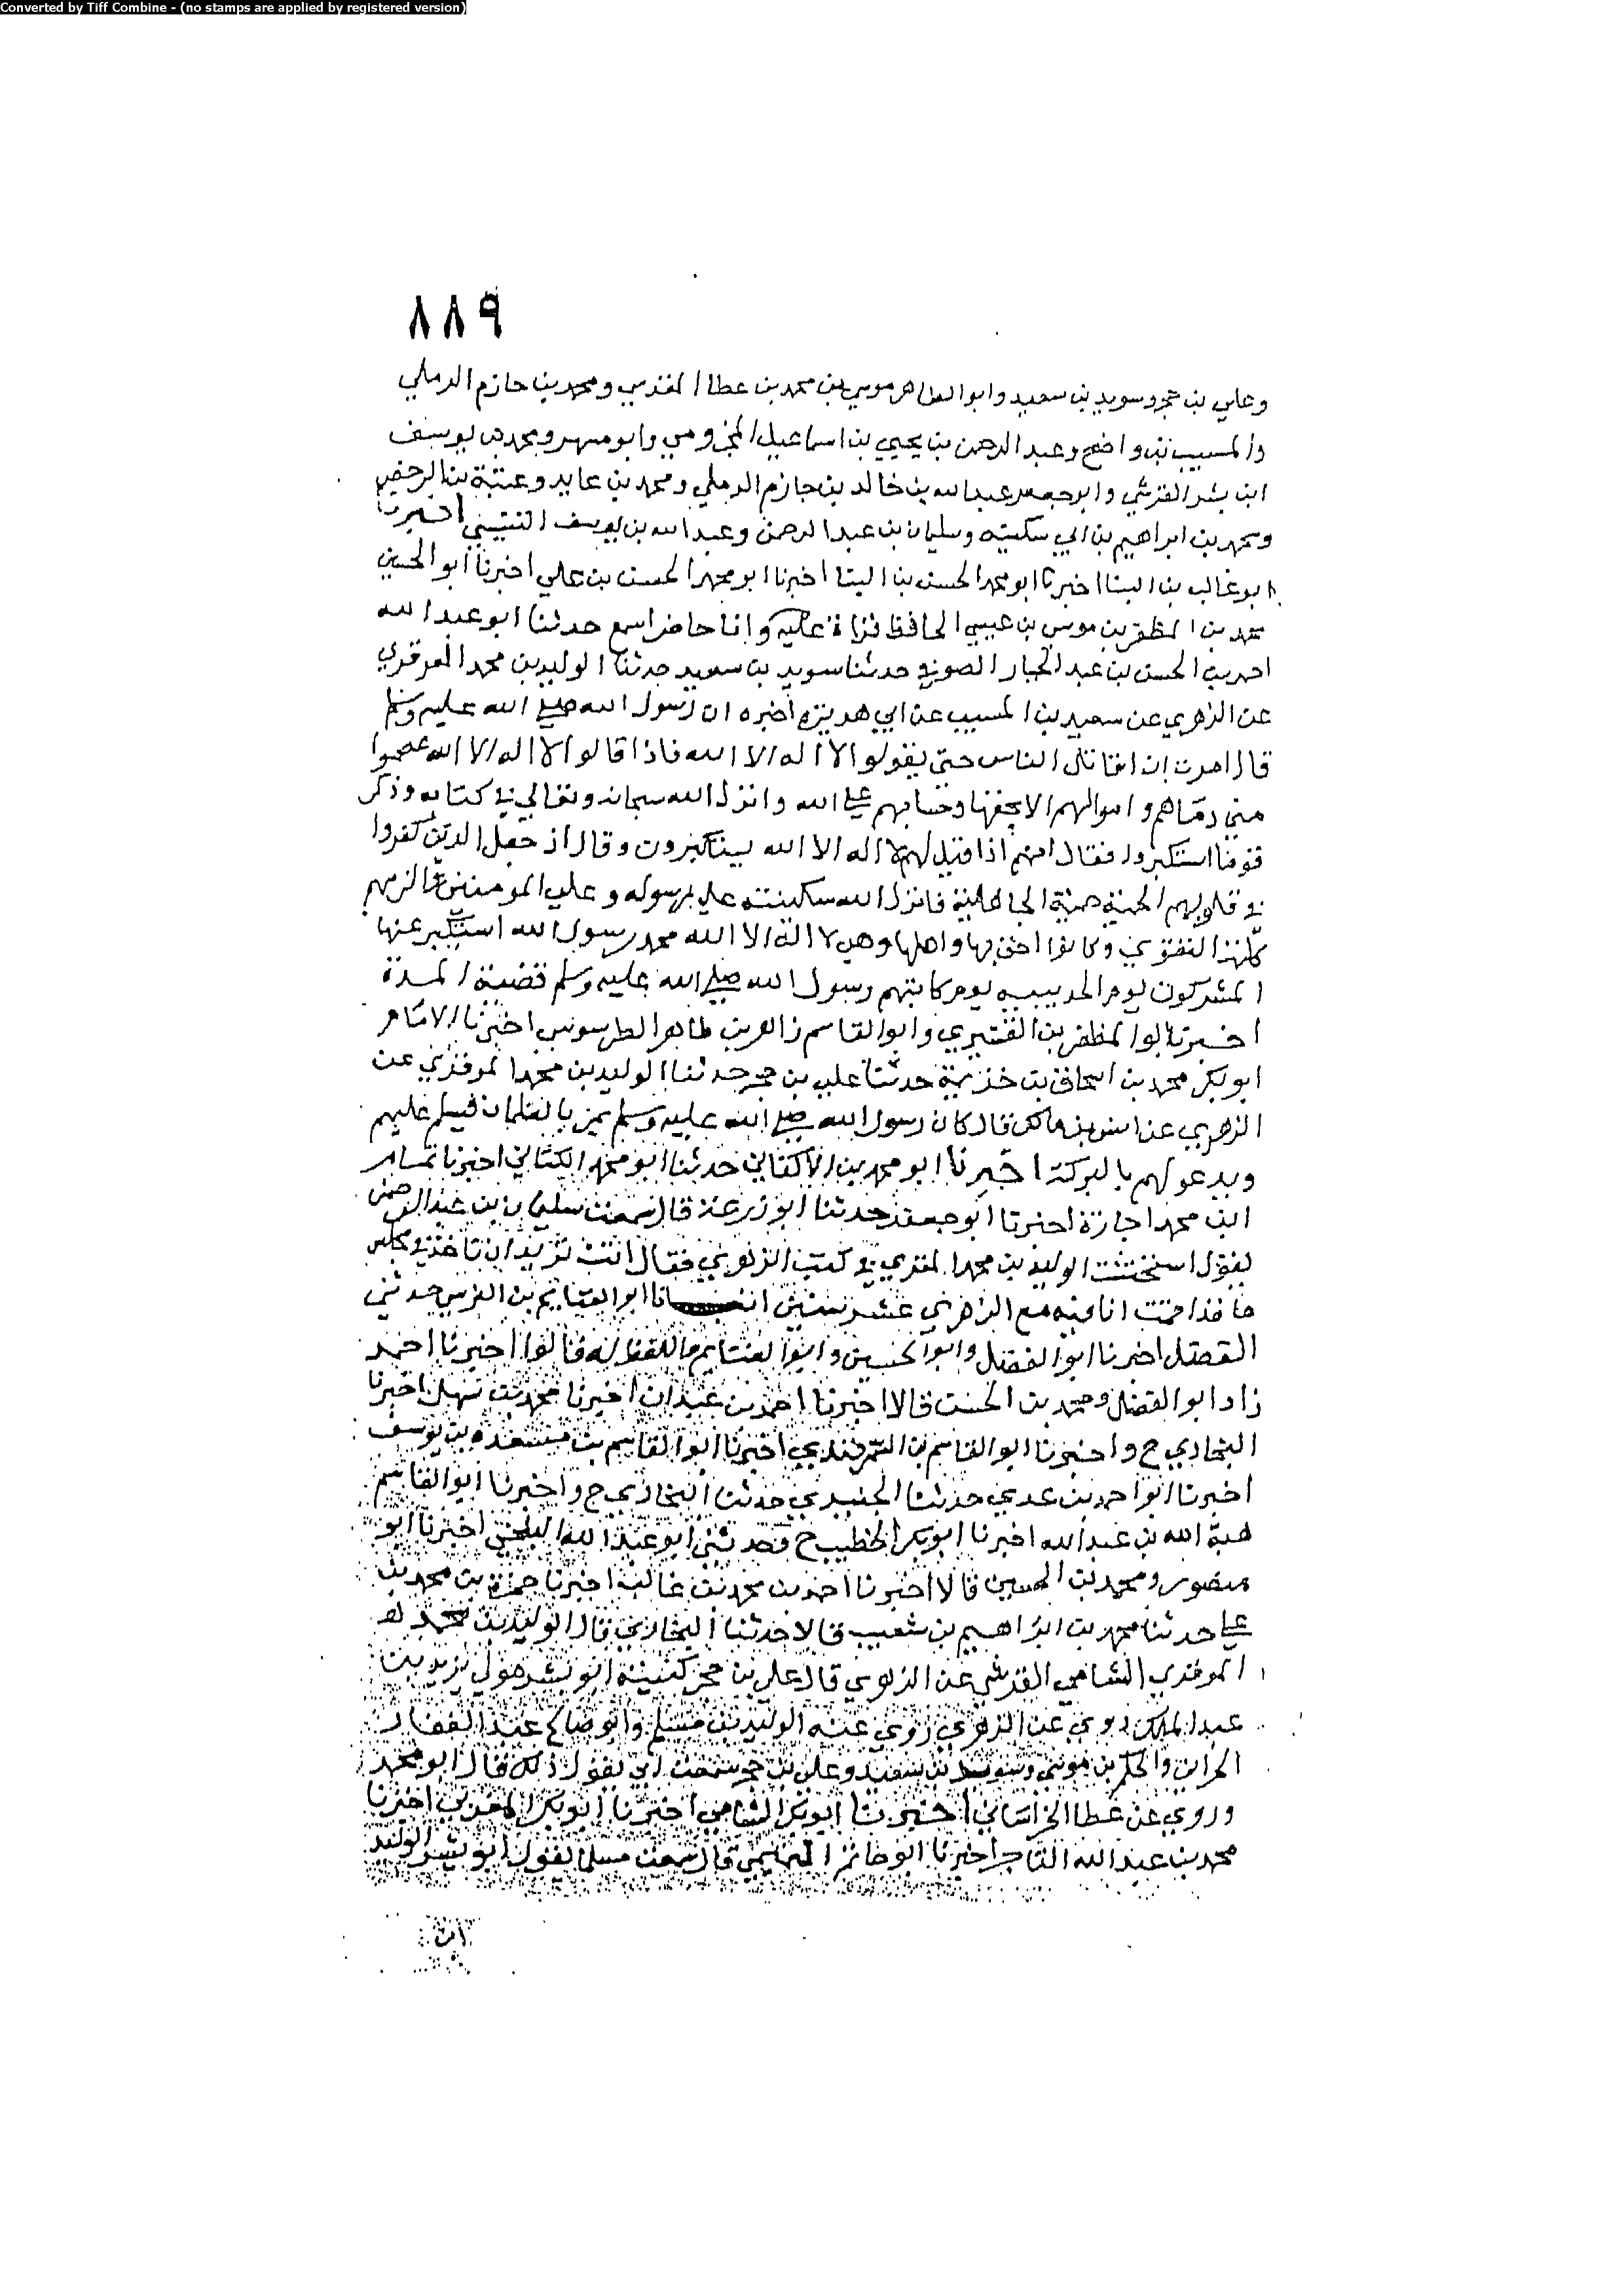 Converted by Tiff Combine - (no stamps are applied by registered version)
٨٨٩
وعلي بن حجر وسويد بن سعيد وابو الطاهر موسى بن محمد بن عطا المقدسي ومحمد بن حازم الرملي
والمسيب بن واضح وعبد الرحمن بن يحيى بن اسماعيل المخزومي وابو مسهر ومحمد بن يوسف
ابن بشر القرشي وابو جعفر عبد الله بن خالد بن حازم الرملي ومحمد بن عايد وعتبة بن
ومحمد بن ابراهيم بن ابي سكينه وسليمان بن عبد الرحمن وعبد الله بن يوسف التنيسي اخبرنا
ابو غالب بن البنا اخبرنا ابو محمد الحسن بن البنا اخبرنا ابو محمد الحسن بن علي اخبرنا ابو الحسين
محمد بن المظفر بن موسى بن عيسى الحافظ قراة عليه وانا حاضر اسمع حدثنا ابو عبد الله
احمد بن الحسن بن عبد الجبار الصوفي حدثنا سويد بن سعيد حدثنا الوليد بن محمد الموقري
عن الزهري عن سعيد بن المسيب عن ابي هريرة اخبره ان رسول الله صلى الله عليه وسلم
قال امرت ان اقاتل الناس حتى يقولوا لا اله الا الله فاذا قالوا لا اله الا الله عصموا
مني دماهم واموالهم الا بحقها وحسابهم على الله وانزل الله سبحانه وتعالى في كتابه وذكر
قوما استكبروا فقال انهم اذا قيل لهم لا اله الا الله يستكبرون وقال اذ جعل الذين كفروا
في قلوبهم الحمية حمية الجاهلية فانزل الله سكينته على رسوله وعلى المومنين والزمهم
كلمة التقوى وكانوا احق بها واهلها وهي لا اله الا الله محمد رسول الله استكبر عنها
المشركون يوم الحديبيه يوم كاتبهم رسول الله صلى الله عليه وسلم قضية المدة
اخبرنا ابو المظفر بن القشيري وابو القاسم زاهر بن طاهر اخبرنا الامام
ابو بكر محمد بن اسحاق بن خزيمة حدثنا علي بن حجر حدثنا الوليد بن محمد الموقري عن
الزهري عن انس بن مالك قال كان رسول الله صلى الله عليه وسلم يمر بالغلمان فيسلم عليهم
ويدعو لهم بالبركة اخبرنا ابو محمد بن الاكفاني حدثنا ابو محمد الكتاني اخبرنا تمام
ابن محمد اجازة اخبرنا ابو جعفر حدثنا ابو زرعة قال سمعت سليمان بن عبد الرحمن
يقول الوليد بن محمد في كتب الزهري فقال انت تريد ان تاخذ في مجلس
ما قد اقمت انا فيه مع الزهري عشر سنين ابو الغنايم بن النرسي حدثني
الفضل اخبرنا ابو الفضل وابو الحسين وابو الغنايم واللفظ له قالوا اخبرنا احمد
زاد ابو الفضل ومحمد بن الحسن قالا اخبرنا احمد بن عبدان اخبرنا محمد بن سهل اخبرنا
البخاري ح واخبرنا ابو القاسم بن السمرقندي اخبرنا ابو القاسم بن مسعدة بن يوسف
اخبرنا ابو احمد بن عدي حدثنا الجنيدي حدثنا البخاري ح واخبرنا ابو القاسم
هبة الله بن عبد الله اخبرنا ابو بكر الخطيب ح وحدثني ابو عبد الله البلخي اخبرنا ابو
منصور ومحمد بن الحسين قالا اخبرنا احمد بن محمد بن غالب اخبرنا حمزة بن محمد بن
علي حدثنا محمد بن ابراهيم بن شعيب قالا حدثنا البخاري قال الوليد بن محمد
الموقري الشامي القرشي عن الزهري قال علي بن حجر كنيته ابو بشر مولى يزيد بن
عبد الملك روى عن الزهري روى عنه الوليد بن مسلم وابو صالح عبد الغفار
الحراني والحكم بن موسى وسويد بن سعيد وعلي بن حجر سمعت ابي يقول ذلك قال ابو محمد
وروى عن عطا الخراساني اخبرنا ابو بكر الشامي اخبرنا ابو بكر اخبرنا
محمد بن عبد الله التاجر اخبرنا ابو حاتم التميمي قال سمعت مسلما يقول ابو بشر الوليد
ابن